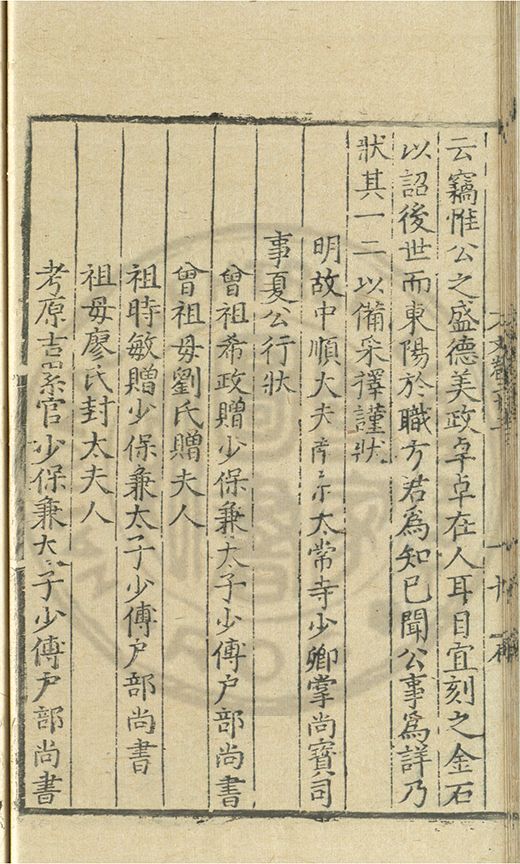 云竊惟公之盛德美政卓卓在人耳目宜刻之金石
以詔後世而東陽於職方君為知已聞公事為詳乃
狀其一二以備采擇謹狀
明故中順大夫太常寺少卿掌尚寳司
事夏公行狀
曾祖希政贈少保兼太子少傅户部尚書
曾祖母劉氏贈夫人
祖時敏贈少保兼太子少傅户部尚書
祖母廖氏封太夫人
考原吉累官少保兼太子少傅户部尚書